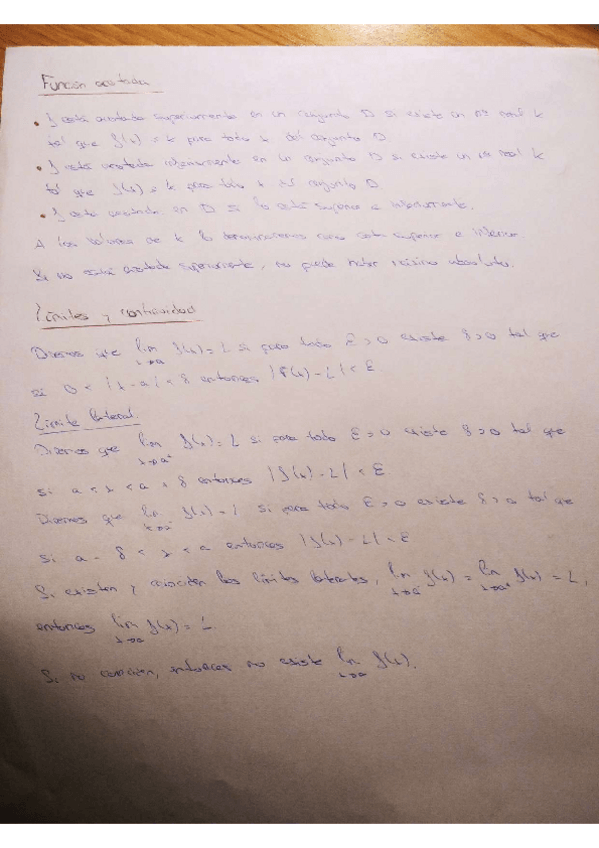 Función acotada
• f está acotada superiormente en un conjunto D si existe un nº real k
tal que f(x) = k para todo x del conjunto D.
• f está acotada inferiormente en un conjunto D si existe un nº real k
tal que f(x) = k para todo x del conjunto D.
• f está acotada en D si lo está superior e inferiormente.
A los valores de k lo denominaremos como cota superior o inferior.
Si no está acotada superiormente, no puede haber máximo absoluto.
Límites y continuidad
Diremos que lim x→a f(x) = L si para todo ε > 0 existe δ > 0 tal que
si 0 < |x - a| < δ entonces |f(x) - L| < ε
Límite lateral
Diremos que lim x→a⁺ f(x) = L si para todo ε > 0 existe δ > 0 tal que
si a < x < a + δ entonces |f(x) - L| < ε
Diremos que lim x→a⁻ f(x) = L si para todo ε > 0 existe δ > 0 tal que
si a - δ < x < a entonces |f(x) - L| < ε
Si existen y coinciden los límites laterales, lim x→a⁻ f(x) = lim x→a⁺ f(x) = L,
entonces lim x→a f(x) = L.
Si no coinciden, entonces no existe lim x→a f(x).